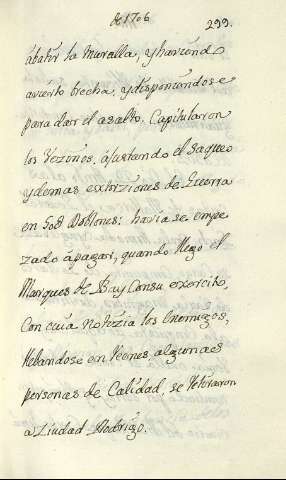 de 1706
299.
abatir la Muralla, y haviendo
avierto brecha, y disponiendose
para darr el asalto. Capitularon
los Vezinos, ajustando el Saqueo
y demas exhirziones de Guerra
en 508 Doblones: havia se empe
zado apagarr, quando llegó el
Marques de Bay Consu exercito,
Con cuia notizia los Enemigos,
llebandose en Reenes, algunas
personas de Calidad, se Retiraron
a Ziudad Rodrigo.